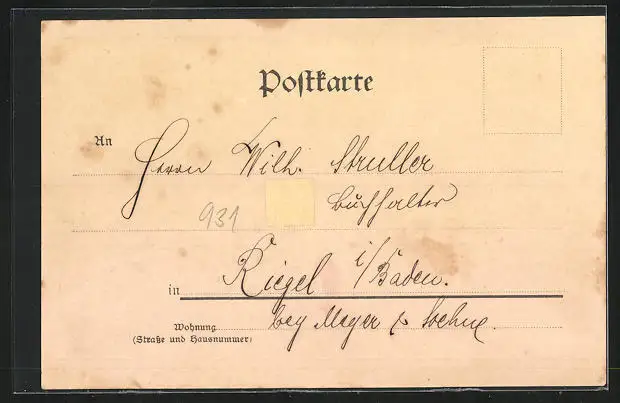 Postkarte
An
Herrn Wilh. Struller
Buchhalter
931
in Riegel i/Baden.
Wohnung
(Straße und Hausnummer)
bey Meyer & Soehne.